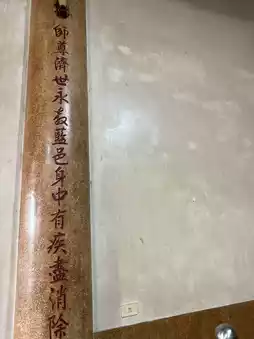 師尊濟世永教藍邑身中有疾盡消除